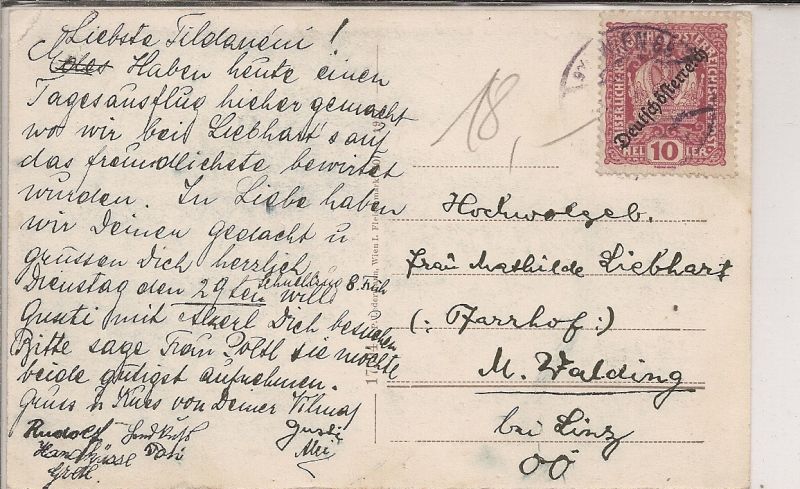 Liebste Tildanéni!
Haben heute einen
Tagesausflug hieher gemacht
wo wir bei Liebhart's auf
das freundlichste bewirtet
wurden. In Liebe haben
wir Deinen gedacht u
grüssen Dich herzlich
Dienstag den 29ten Schnellzug 8 Früh will
Gusti mit Dich besuchen
Bitte sage Frau Poltl sie möchte
beide gütigst aufnehmen.
Gruss u Kuss von Deiner Vilma
Rudolf Handkuss Gusti
Handküsse
Gretl.
18,—
WIEN
Deutschösterreich
10
HELLER
Hochwolgeb.
Frau Mathilde Liebhart
(: Pfarrhof :)
M. Walding
bei Linz
OÖ